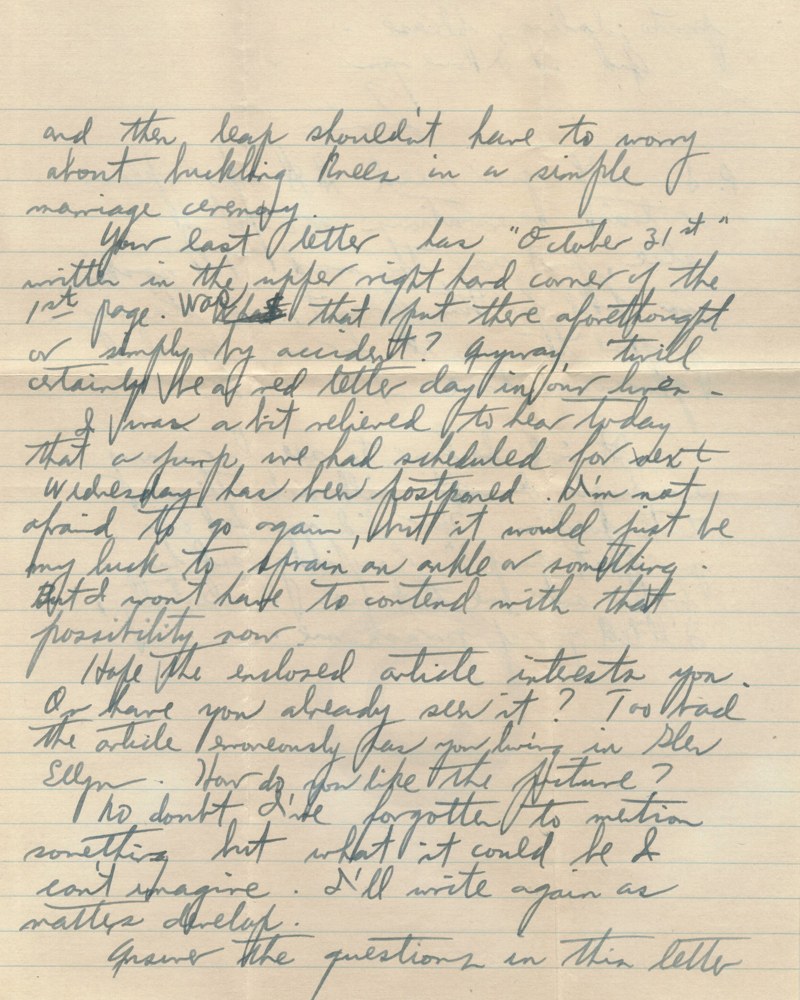 and then leap shouldn't have to worry
about buckling knees in a simple
marriage ceremony.
Your last letter has "October 31st"
written in the upper right hand corner of the
1st page. Was that put there aforethought
or simply by accident? Anyway 'twill
certainly be a red letter day in our lives -
I was a bit relieved to hear today
that a jump we had scheduled for next
Wednesday has been postponed. I'm not
afraid to go again, but it would just be
my luck to sprain an ankle or something.
But I won't have to contend with that
possibility now.
Hope the enclosed article interests you.
Or have you already seen it? Too bad
the article erroneously has you living in Glen
Ellyn. How do you like the picture?
No doubt I've forgotten to mention
something but what it could be I
can't imagine. I'll write again as
matters develop.
Answer the questions in this letter